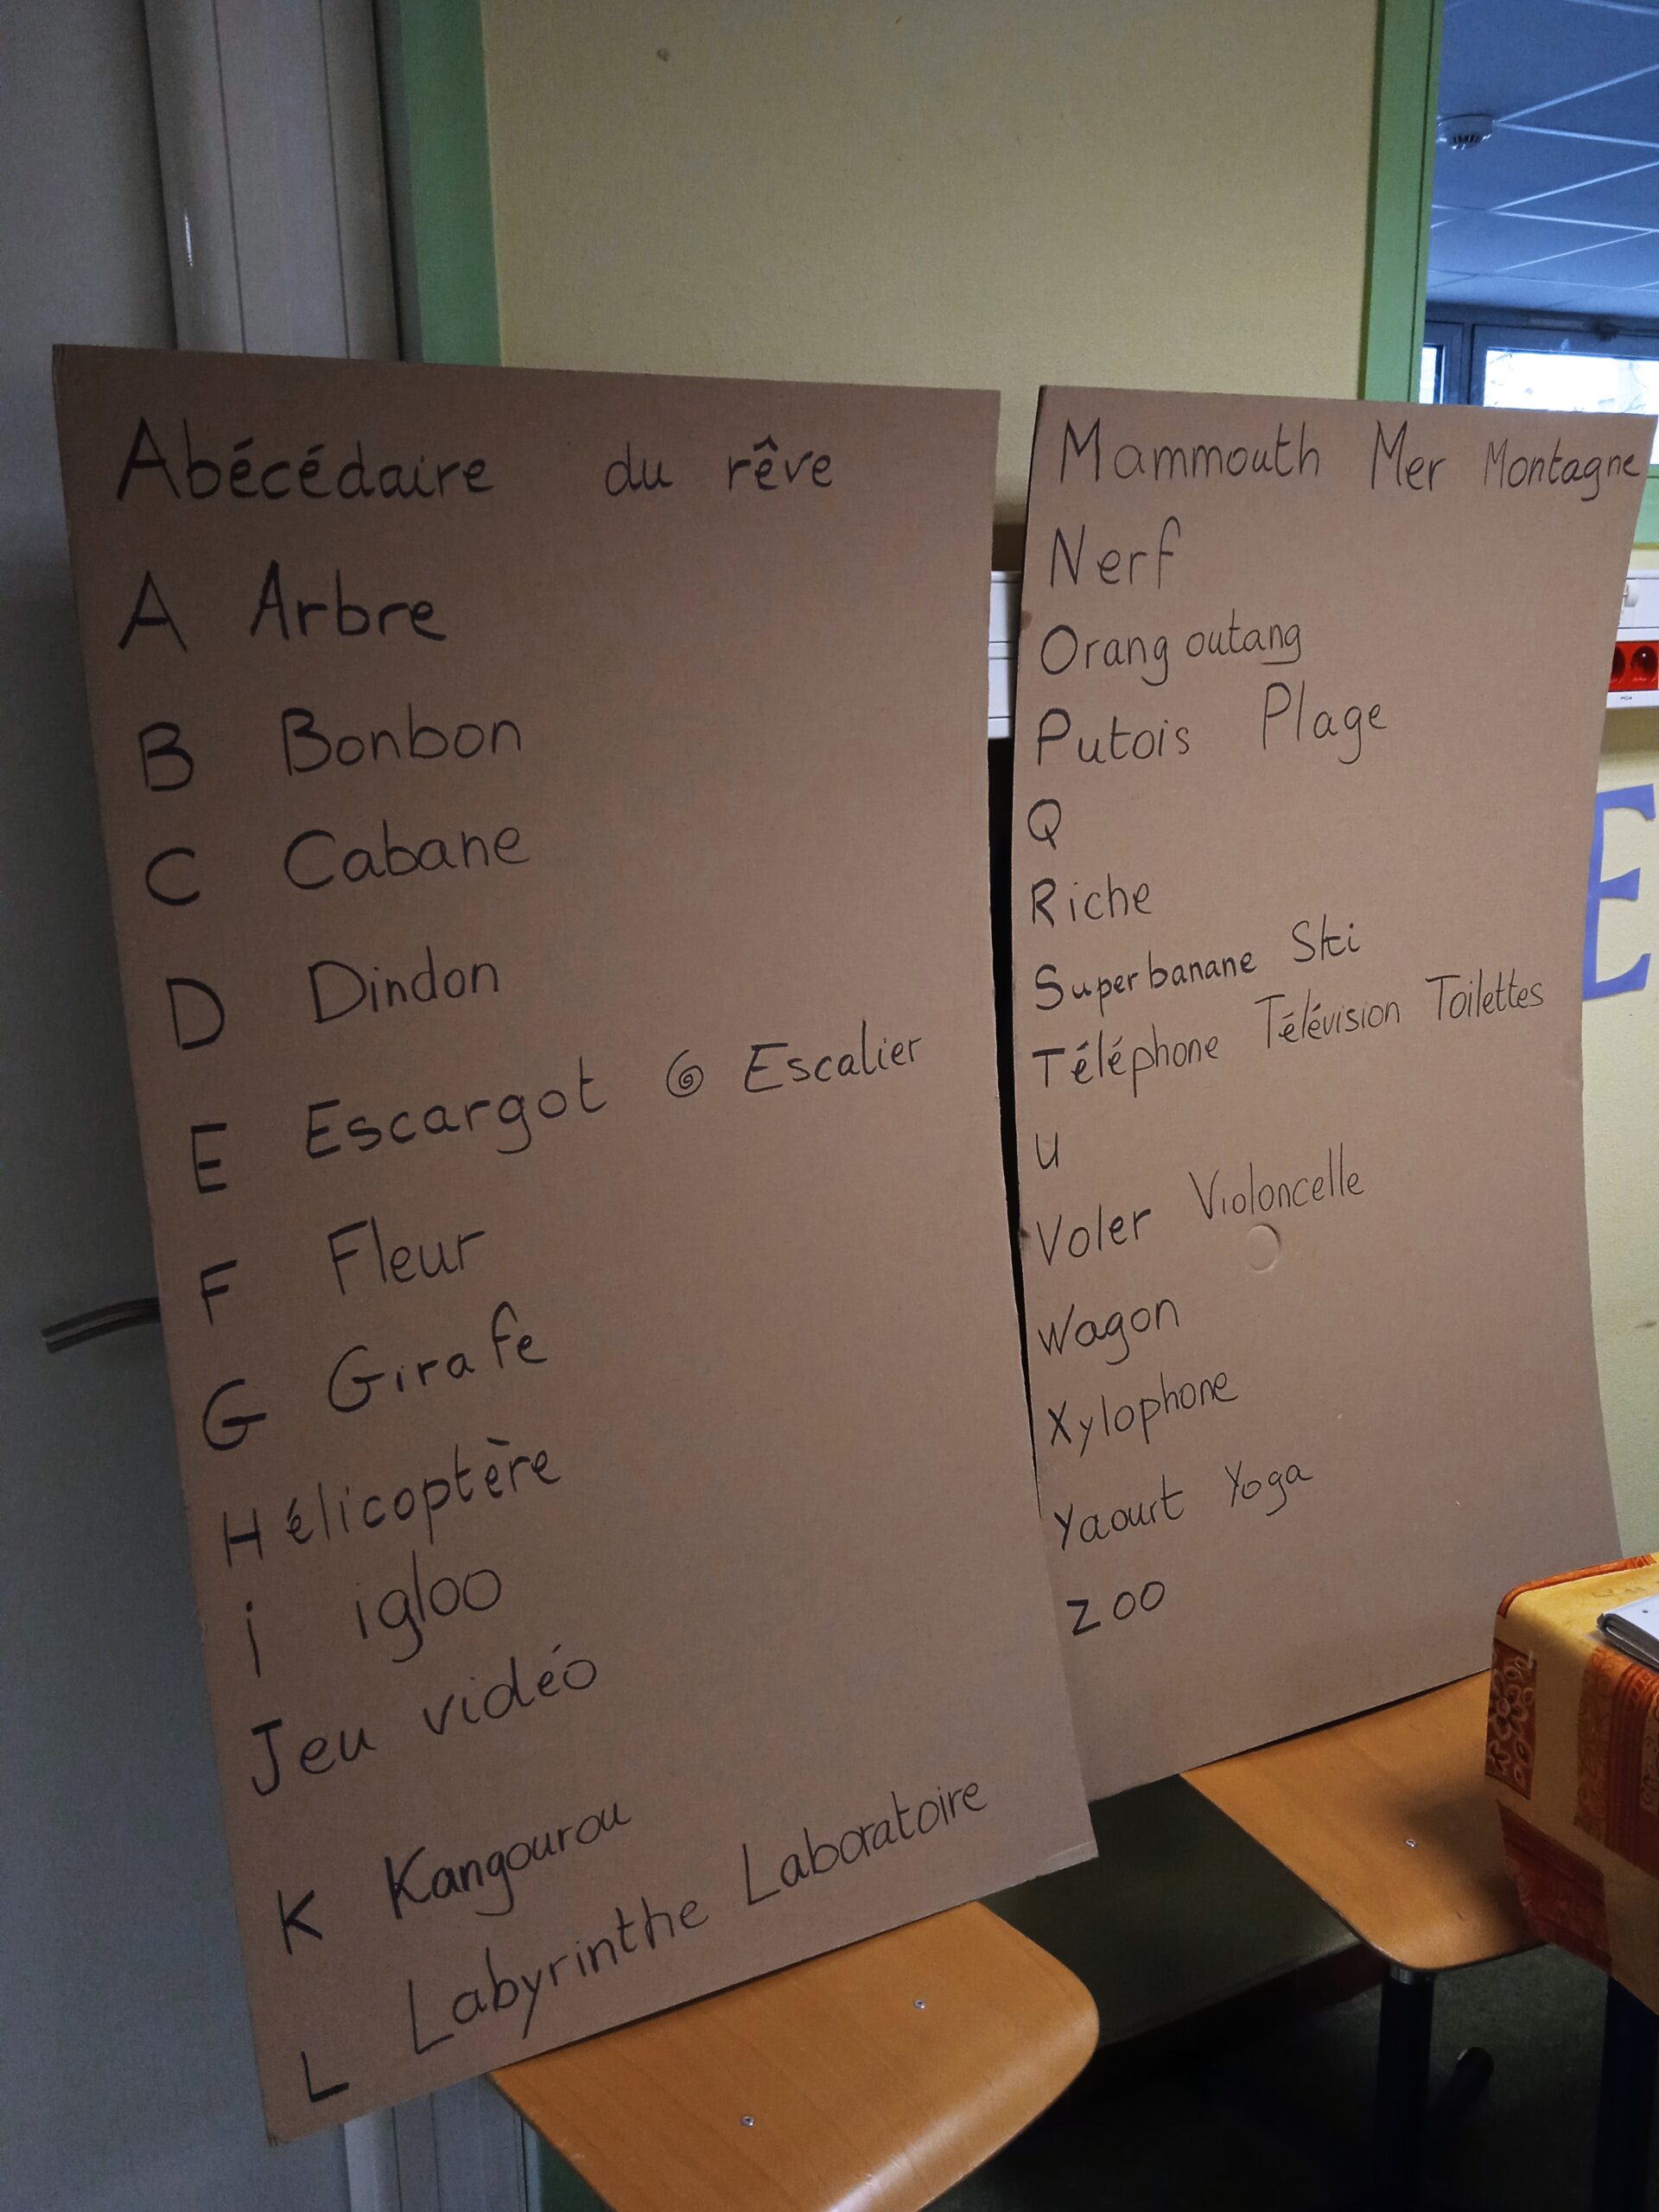 Abécédaire du rêve
A Arbre
B Bonbon
C Cabane
D Dindon
E Escargot Escalier
F Fleur
G Girafe
Hélicoptère
i igloo
Jeu vidéo
K Kangourou
L Labyrinthe Laboratoire
Mammouth Mer Montagne
Nerf
Orang outang
Putois Plage
Q
Riche
Superbanane Ski
Téléphone Télévision Toilettes
U
Voler Violoncelle
Wagon
Xylophone
Yaourt Yoga
Zoo
E